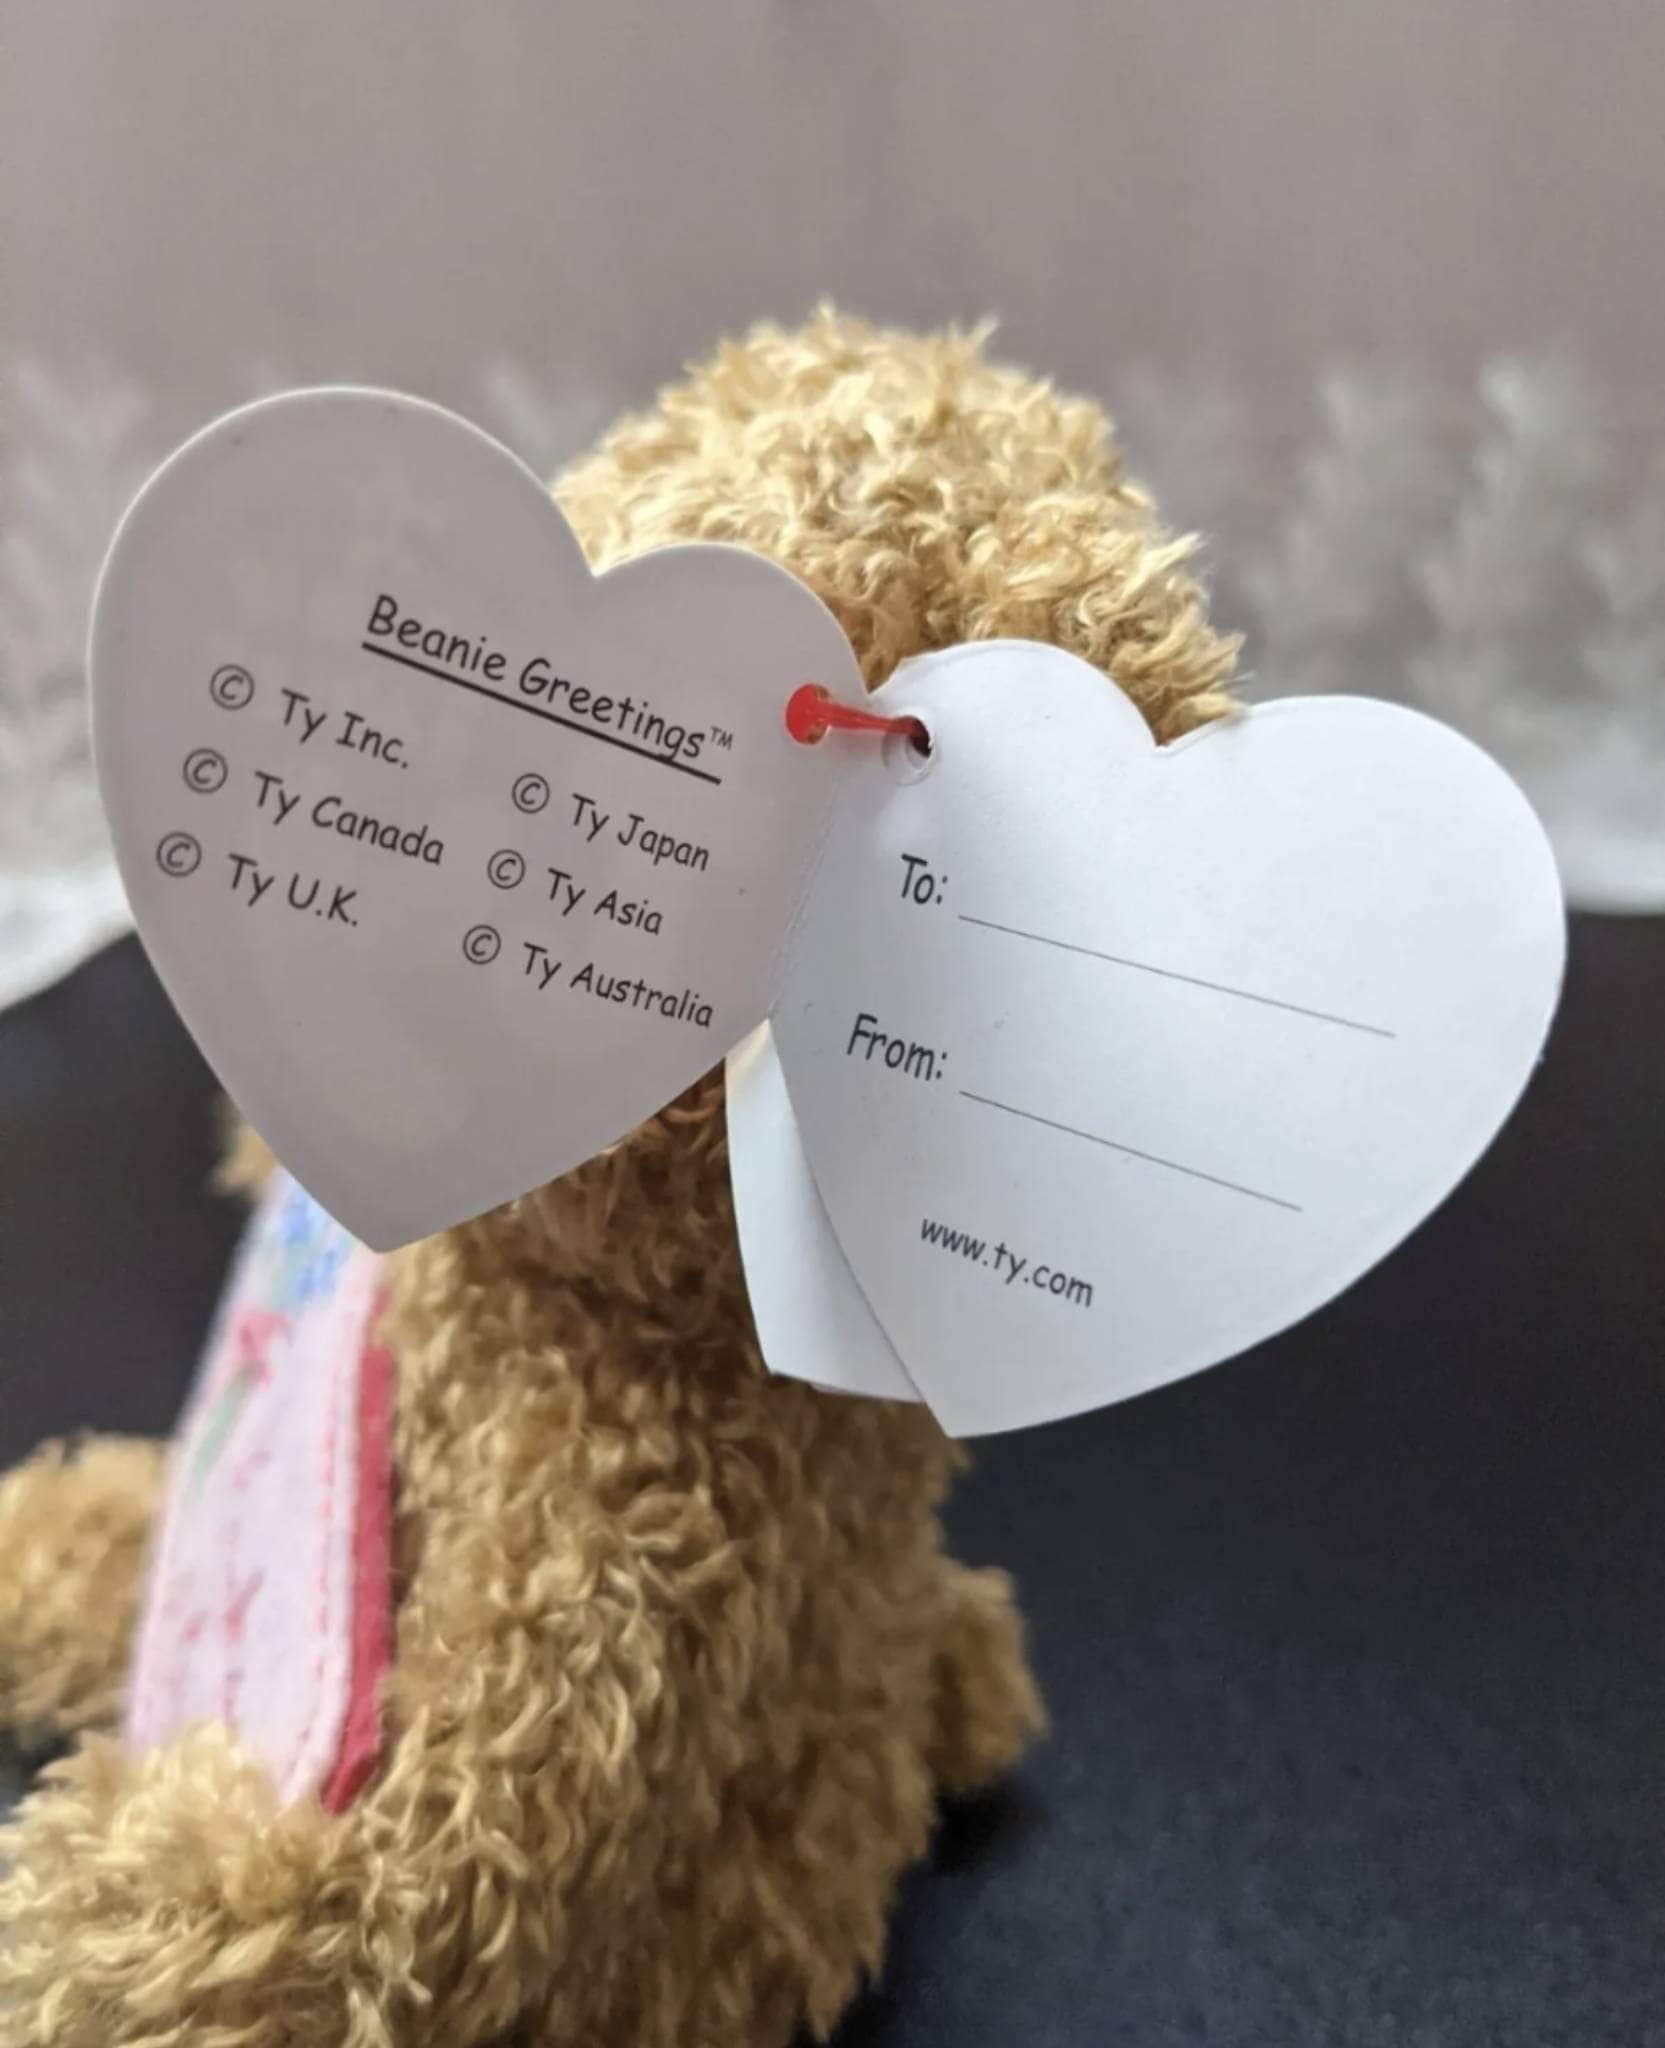 Beanie Greetings™
© Ty Inc.
© Ty Canada
© Ty U.K.
© Ty Japan
© Ty Asia
© Ty Australia
To:
From:
www.ty.com